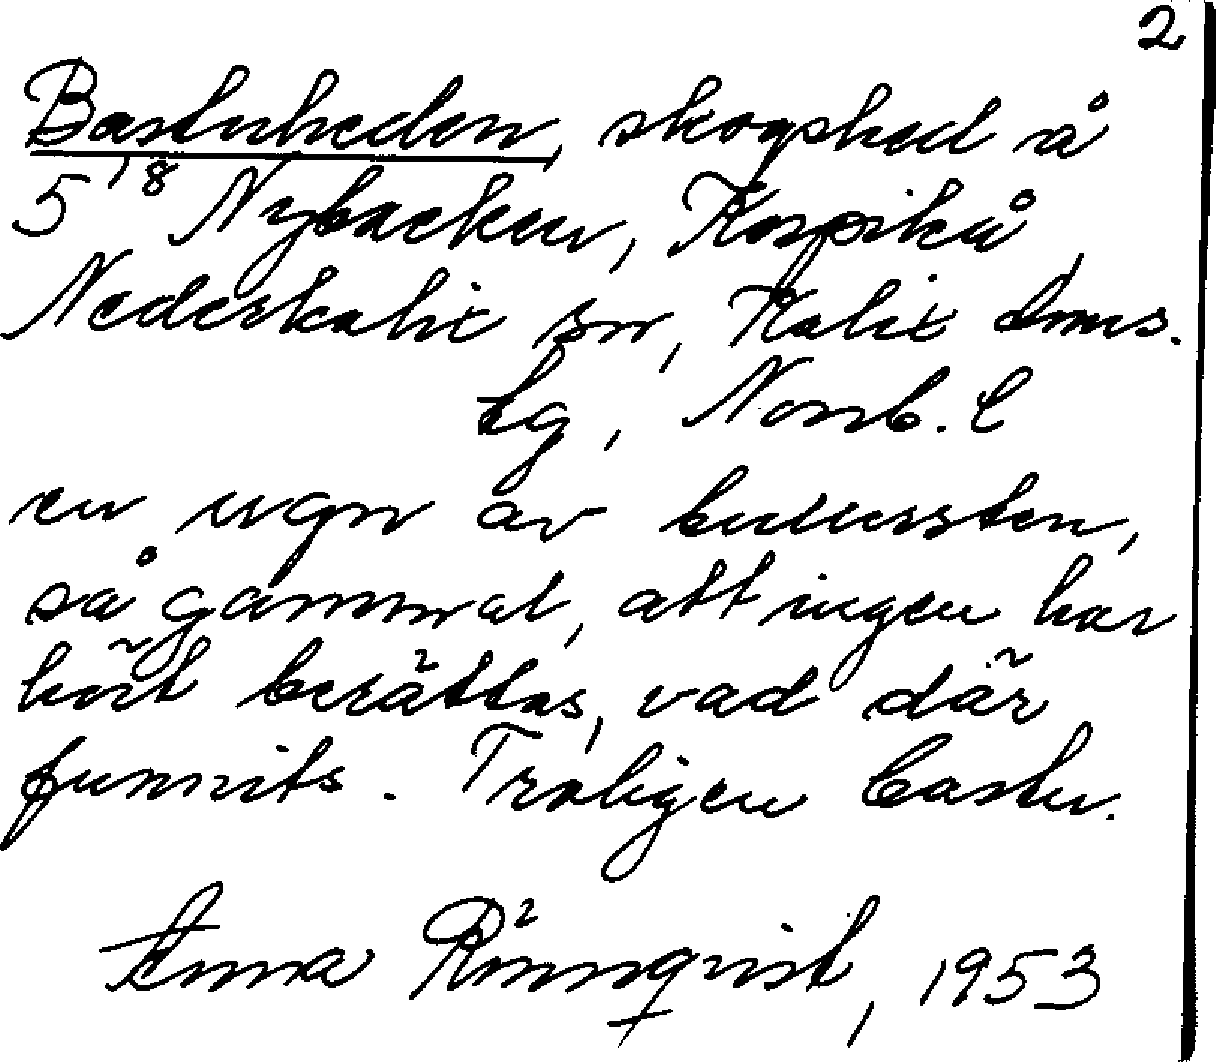 2
Bastuheden, skogshed å
5¹⁸ Nybacken, Korpikå,
Nederkalix sn, Kalix dmns.
tg, Norrb. l
en ugn av kullersten,
så gammal, att ingen har
hört berättas, vad där
funnits. Troligen bastu.
Anna Rönnqvist, 1953